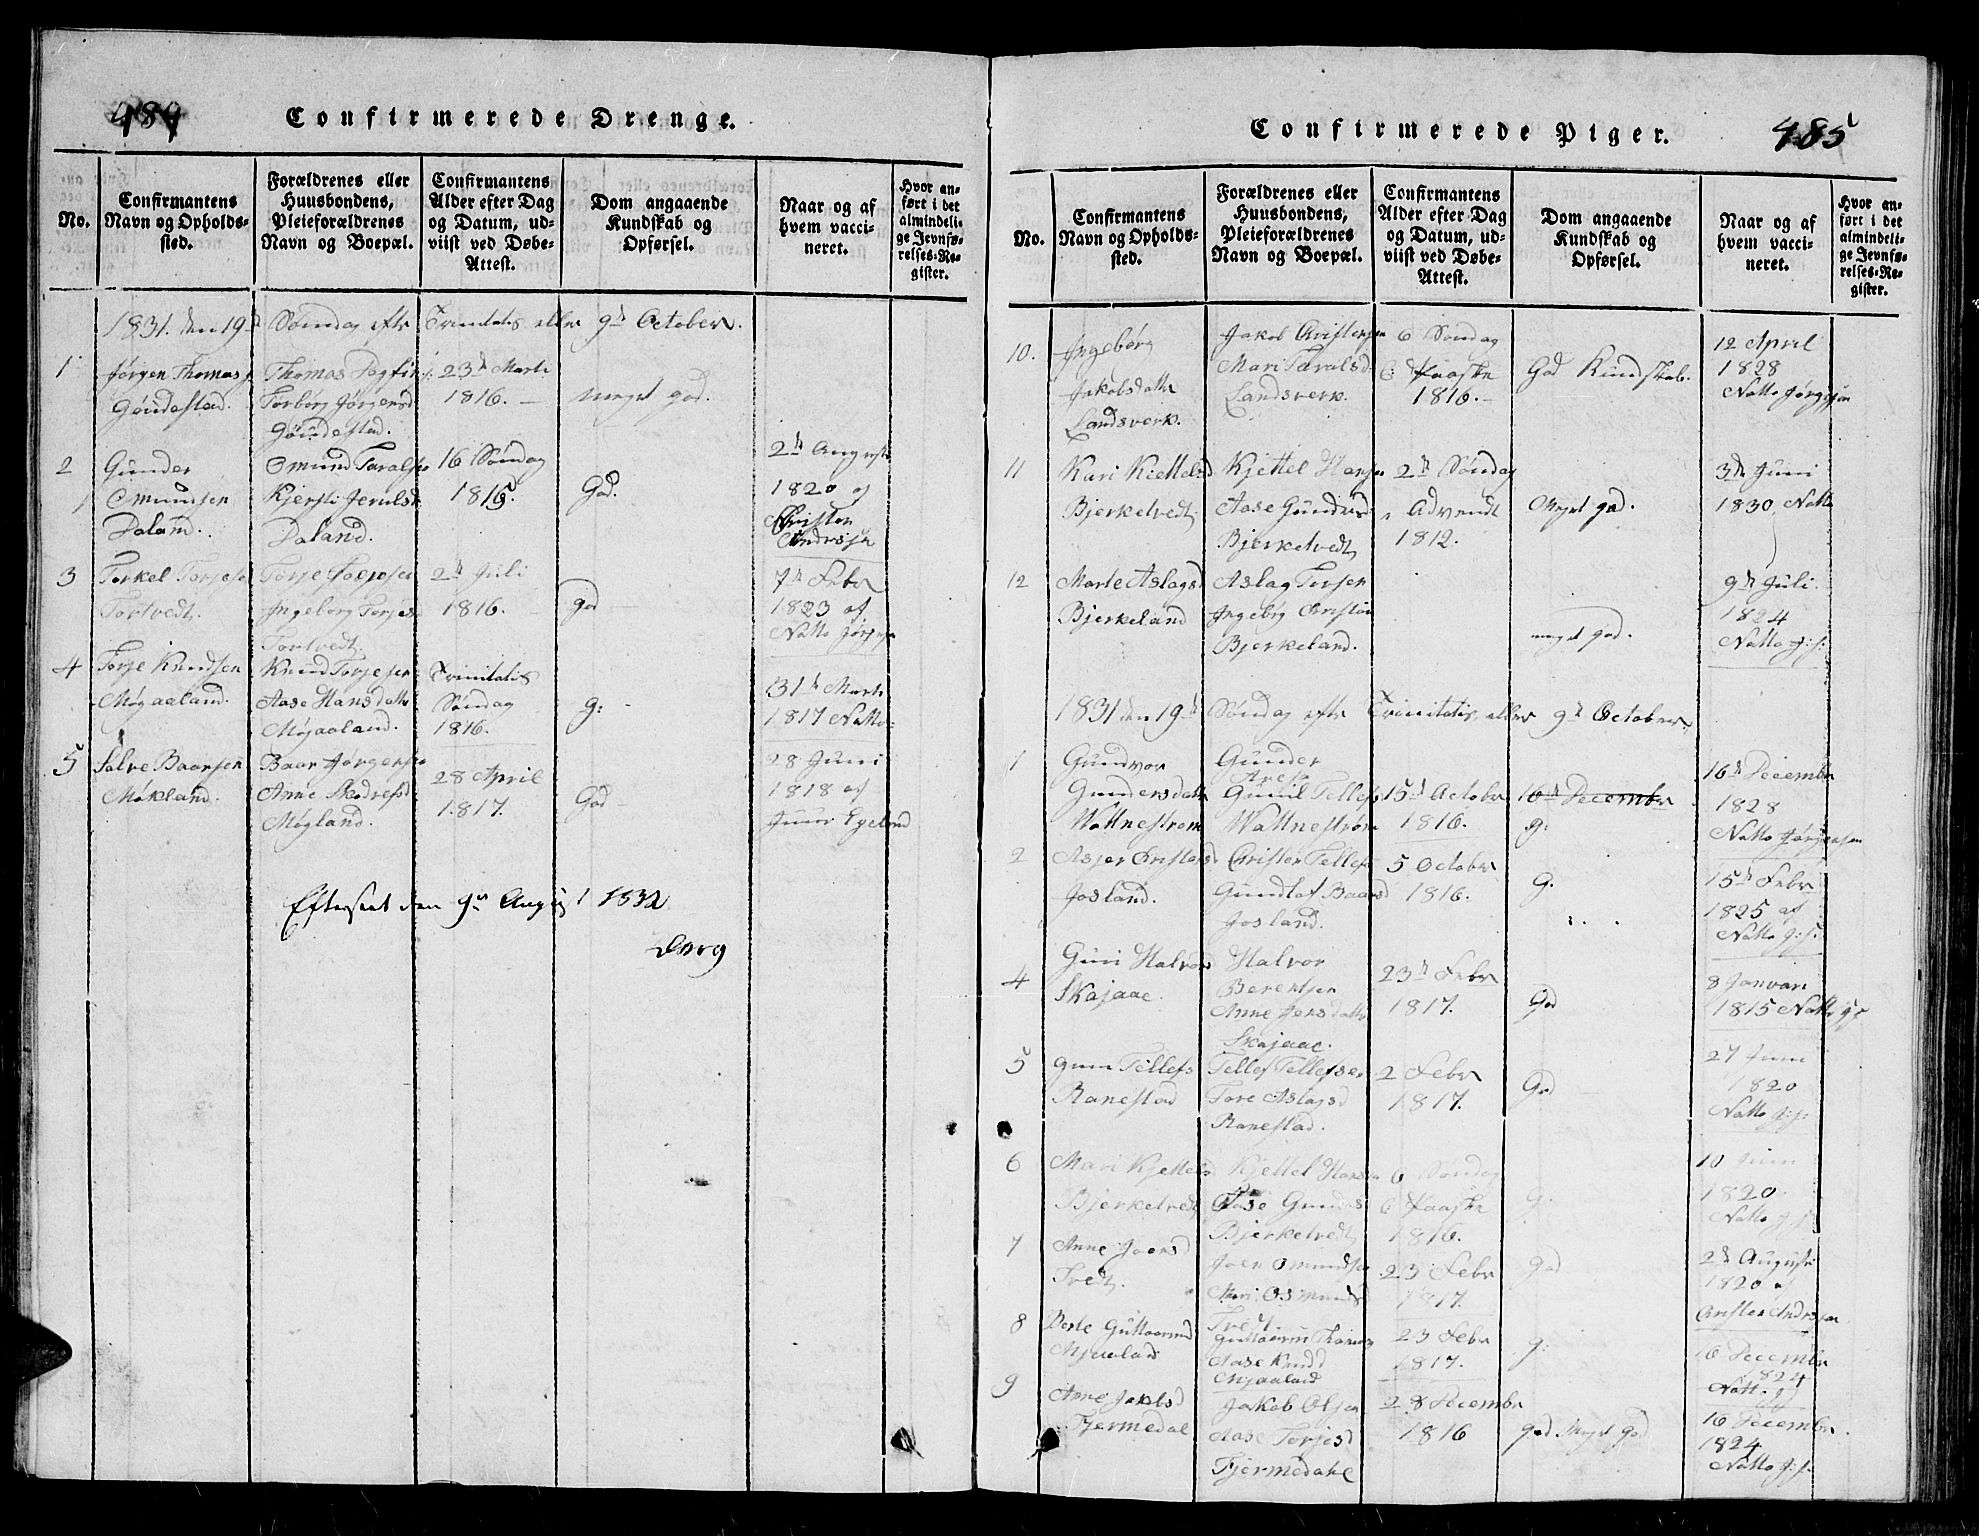 484
Confirmerede Drenge.
No.
Confirmantens
Navn og Opholds-
sted.
Forældrenes eller
Huusbondens,
Pleieforældrenes
Navn og Boepæl.
Confirmantens
Alder efter Dag
og Datum, ud-
viist ved Døbe-
Attest.
Dom angaaende
Kundskab og
Opførsel.
Naar og af
hvem vacci-
neret.
Hvor an-
ført i det
almindeli-
ge Jevnfø-
relses-Re-
gister.
1831. den 19d Søndag efter Trinitatis eller 9d October.
1
Jørgen Thomas
Gøudestad.
Thomas
Torborg Jørgensd
Gøudestad.
23d Marts
1816.
meget god.
2
Gunder
Omundsen
Daland.
Omund Taralsen
Kjersti
Daland.
16 Søndag
1816.
God.
2d August
1820 af
Christen
Andersen
3
Torkel Torjesen
Tortvedt.
Torje
Ingeborg Torjesd
Tortvedt.
2d Juli
1816.
god
7d Febr
1823 af
Natto Jørgens
4
Torje Knudsen
Møgaaland.
Knud Torjesen
Aase Hansdatter
Møgaaland.
Trinitatis
Søndag
1816.
g:
31d Marts
1817 Natto
5
Salve Baarsen
Møkland.
Baar Jørgensen
Anne
Møgland.
28 April
1817.
God
28 Juni
1818 af
Egeland
Efterseet den 9de August 1832
485
Confirmerede Piger.
No.
Confirmantens
Navn og Opholds-
sted.
Forældrenes eller
Huusbondens,
Pleieforældrenes
Navn og Boepæl.
Confirmantens
Alder efter Dag
og Datum, ud-
viist ved Døbe-
Attest.
Dom angaaende
Kundskab og
Opførsel.
Naar og af
hvem vacci-
neret.
Hvor an-
ført i det
almindeli-
ge Jevnfø-
relses-Re-
gister.
10.
Ingebørg
Jakobsdatter
Landsverk.
Jakob Cristensen
Mari Taralsd
Landsverk.
6 Søndag
e: Paaske
1816.
God Kundskab.
12 April
1828
Natto Jørgensen
11
Kari Kiettelsd
Bjerkelvedt
Kjettel Hansen
Aase Gundersd
Bjerkelvedt
2d Søndag
Advendt
1812.
Meget god.
3d Juni
1830 Natto
12
Marte Aslagsd
Bjerkeland
Aslag Torjsen
Ingebørg Cristen
Bjerkeland.
meget god.
9d Juli
1824
Natto J:s:
1831 den 19d Søndag efter Trinitatis, eller 9d October
1
Gunvor
Gundersdatter
Wattnestrøm
Gunder
Gunil Tellefs
Wattnestrøm
15d October
1816.
10d Decembr
g:
16d Decembr
1828
Natto Jørgensen
2
Asjer Cristensd
Josland.
Cristen Tellefs
Gundlaf Baarsd
Josland.
5 October
1816.
G.
15d Febr
1825 af
Natto J:s:
4
Guni Halvorsd
Skajaae.
Halvor
Berentsen
Anne Jensdatter
Skajaae.
23d Febr
1817.
God
8 Januari
1815 Natto J:s
5
Guni Tellefs
Ranestad
Tellef Tellefsen
Tore Aslagsd
Ranestad.
2 Febr
1817.
God
27 Juni
1820
Natto J:s:
6
Mari Kjettelsd
Bjerkelvedt
Kjettel Hansen
Aase Gundersd
Bjerkelvedt
6 Søndag
e Paaske
1816.
g.
10 Juni
1820
Natto J:s
7
Anne Joensd
Tvedt.
Joen Omundsen
Mari Osmunds
Tvedt.
23 Febr
1817.
God
2d August
1820 af
Cristen Andersen
8
Berte Guttormsd
Mjaaland
Guttorm
Aase Knudd
Mjaaland
23 Febr
1817.
g:
16 Decembr
1824
Natt.
9
Anne Jakobsd
Fjermedal
Jakob Olsen
Aase Torjesd
Fjermedahl
28 Decembr
1816
god Meget god
16 Decembr
1824
Natto J:s: